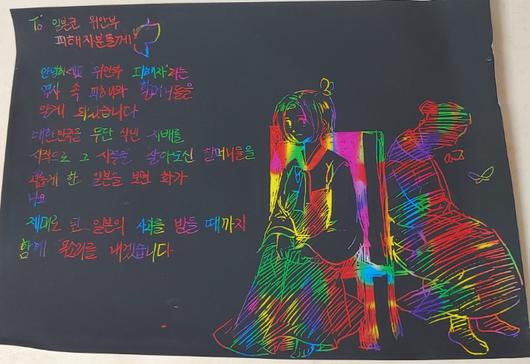 To 일본군 위안부
피해자분들께
안녕하세요 위안부 피해자라는
역사 속 피해와 할머니들을
알게 되었습니다
대한민국은 무단 식민 지배를
시작으로 그 시절을 살아오신 할머니들을
괴롭게 한 일본을 보면 화가
나요
제대로 된 일본의 사과를 받을 때까지
함께 목소리를 내겠습니다